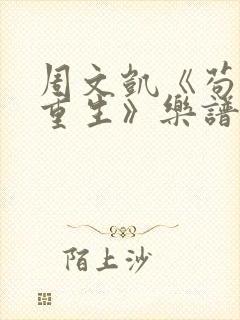 周文凱《苟
重生》樂譜
陌上沙